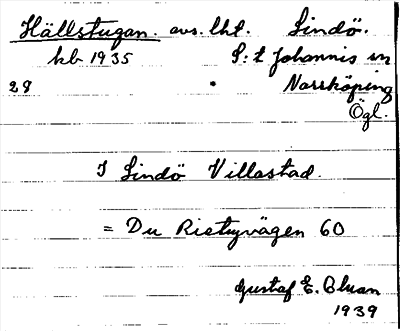 Hällstugan. avs. lht. Lindö.
kb 1935 S:t Johannis sn
28 Norrköping
Ögl.
I Lindö Villastad.
= Du Rietzvägen 60
Gustaf E.
1939